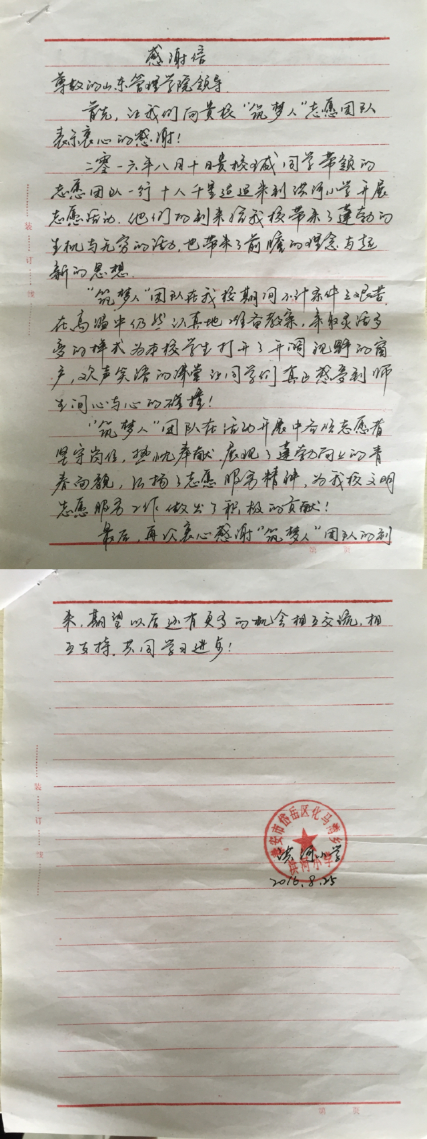 感谢信
尊敬的山东管理学院领导
首先，让我们向贵校“筑梦人”志愿团队
表示衷心的感谢！
二零一六年八月十日贵校 同学带领的
志愿团队一行十人千里迢迢来到 河小学开展
志愿活动，他们的到来给我校带来了蓬勃的
生机与无穷的活力，也带来了前瞻的理念与起
新的思想
“筑梦人”团队在我校期间不计条件之艰苦
在高温中仍然认真地准备教案，并以灵活多
变的样式为本校学生打开了开阔视野的窗
户，欢声笑语的课堂让同学们真正感受到师
生间心与心的碰撞！
“筑梦人”团队在活动开展中各位志愿者
坚守岗位，热忱奉献，展现了蓬勃向上的青
春面貌，弘扬了志愿服务精神，为我校文明
志愿服务工作做出了积极的贡献！
最后，再次衷心感谢“筑梦人”团队的到
第 页
来，期望以后还有更多的机会相互交流，相
互支持，共同学习进步！
泰安市岱岳区化马湾乡
河小学
2016.8.25
装
订
线
第 页